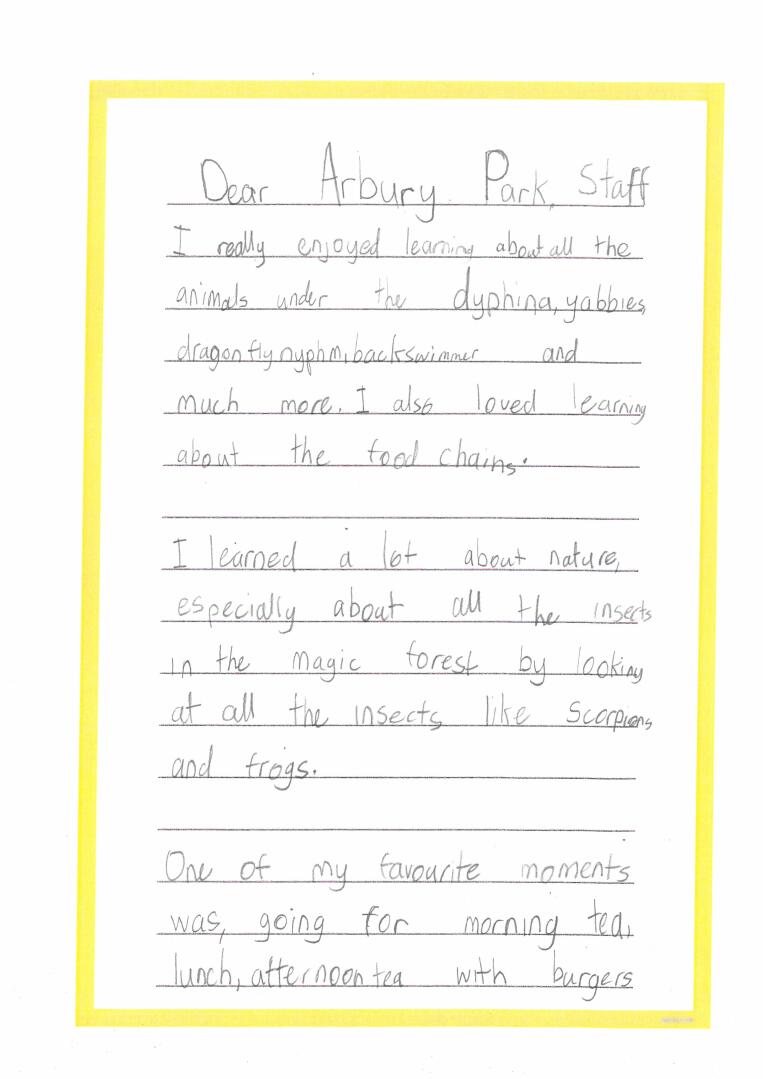 Dear Arbury Park, Staff
I really enjoyed learning about all the
animals under the dyphina, yabbies,
dragon fly nyphm, backswimmer and
much more. I also loved learning
about the food chains.
I learned a lot about nature,
especially about all the insects
in the magic forest by looking
at all the insects like Scorpions
and frogs.
One of my favourite moments
was, going for morning tea,
lunch, afternoon tea with burgers